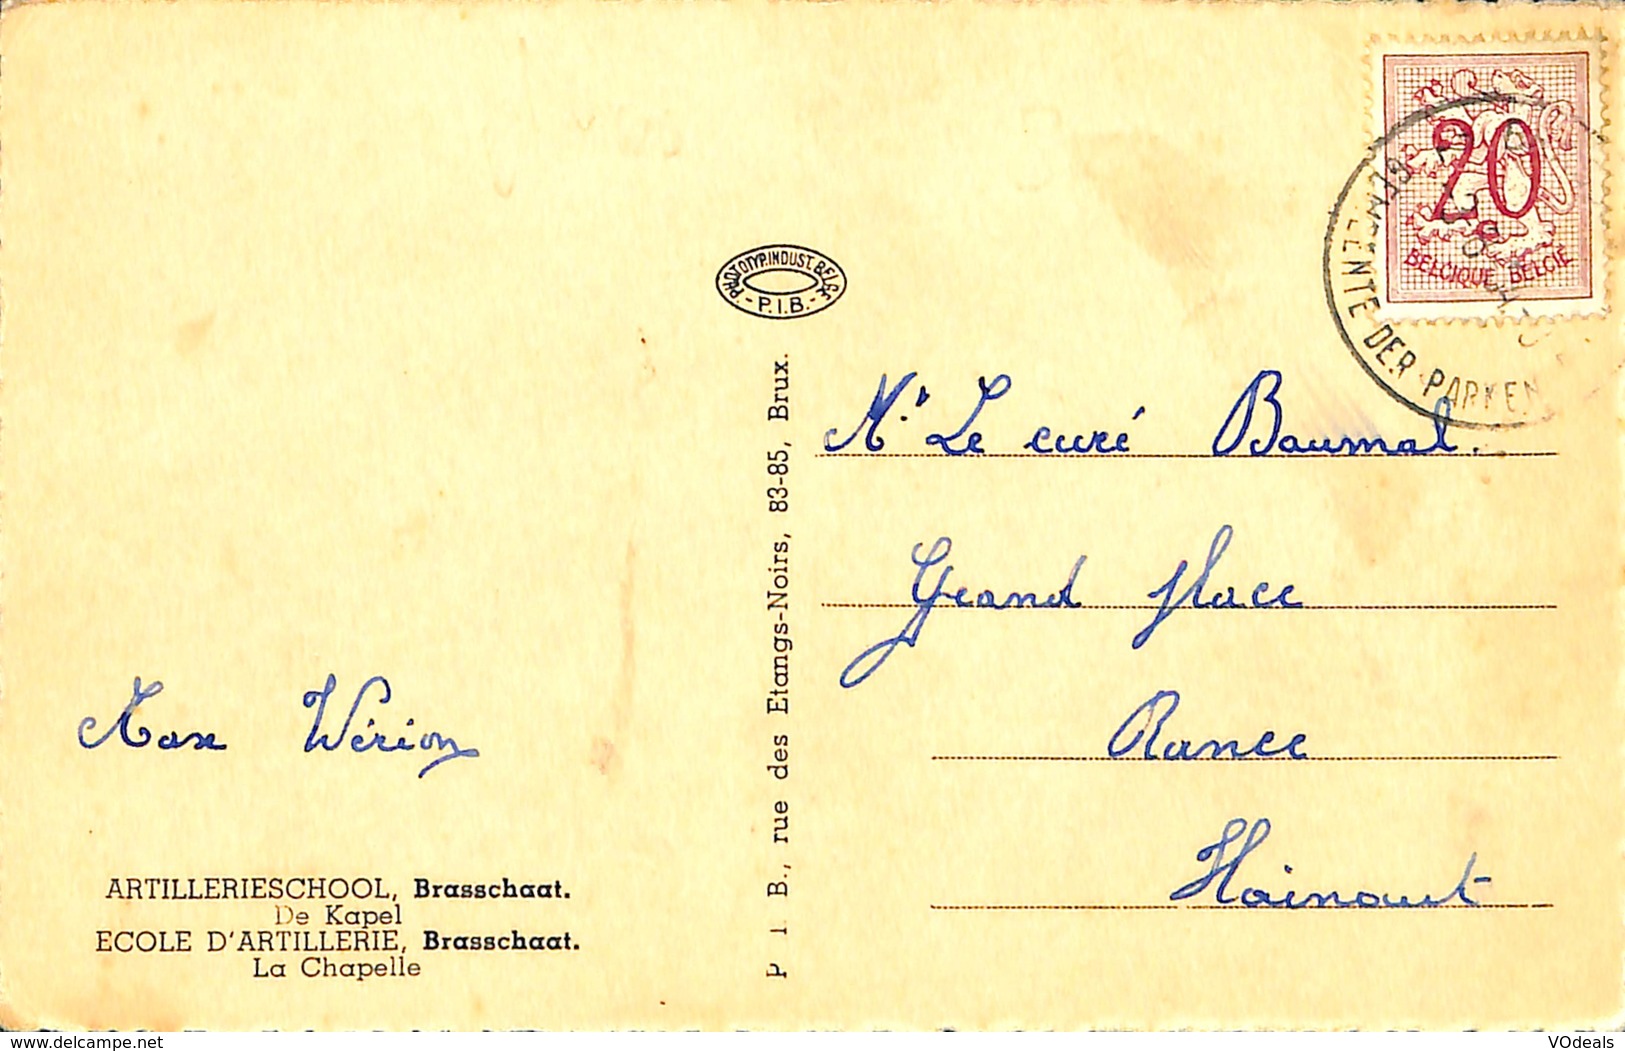 PHOTOTYP. INDUST. BELGE
- P.I.B. -
20
BELGIQUE BELGIË
GEMEENTE DER PARKEN
Mr Le curé Baumal.
Grand place
Rance
Hainaut
Max Wérion
ARTILLERIESCHOOL, Brasschaat.
De Kapel
ECOLE D'ARTILLERIE, Brasschaat.
La Chapelle
P I B., rue des Etangs-Noirs, 83-85, Brux.
delcampe.net
VOdeals